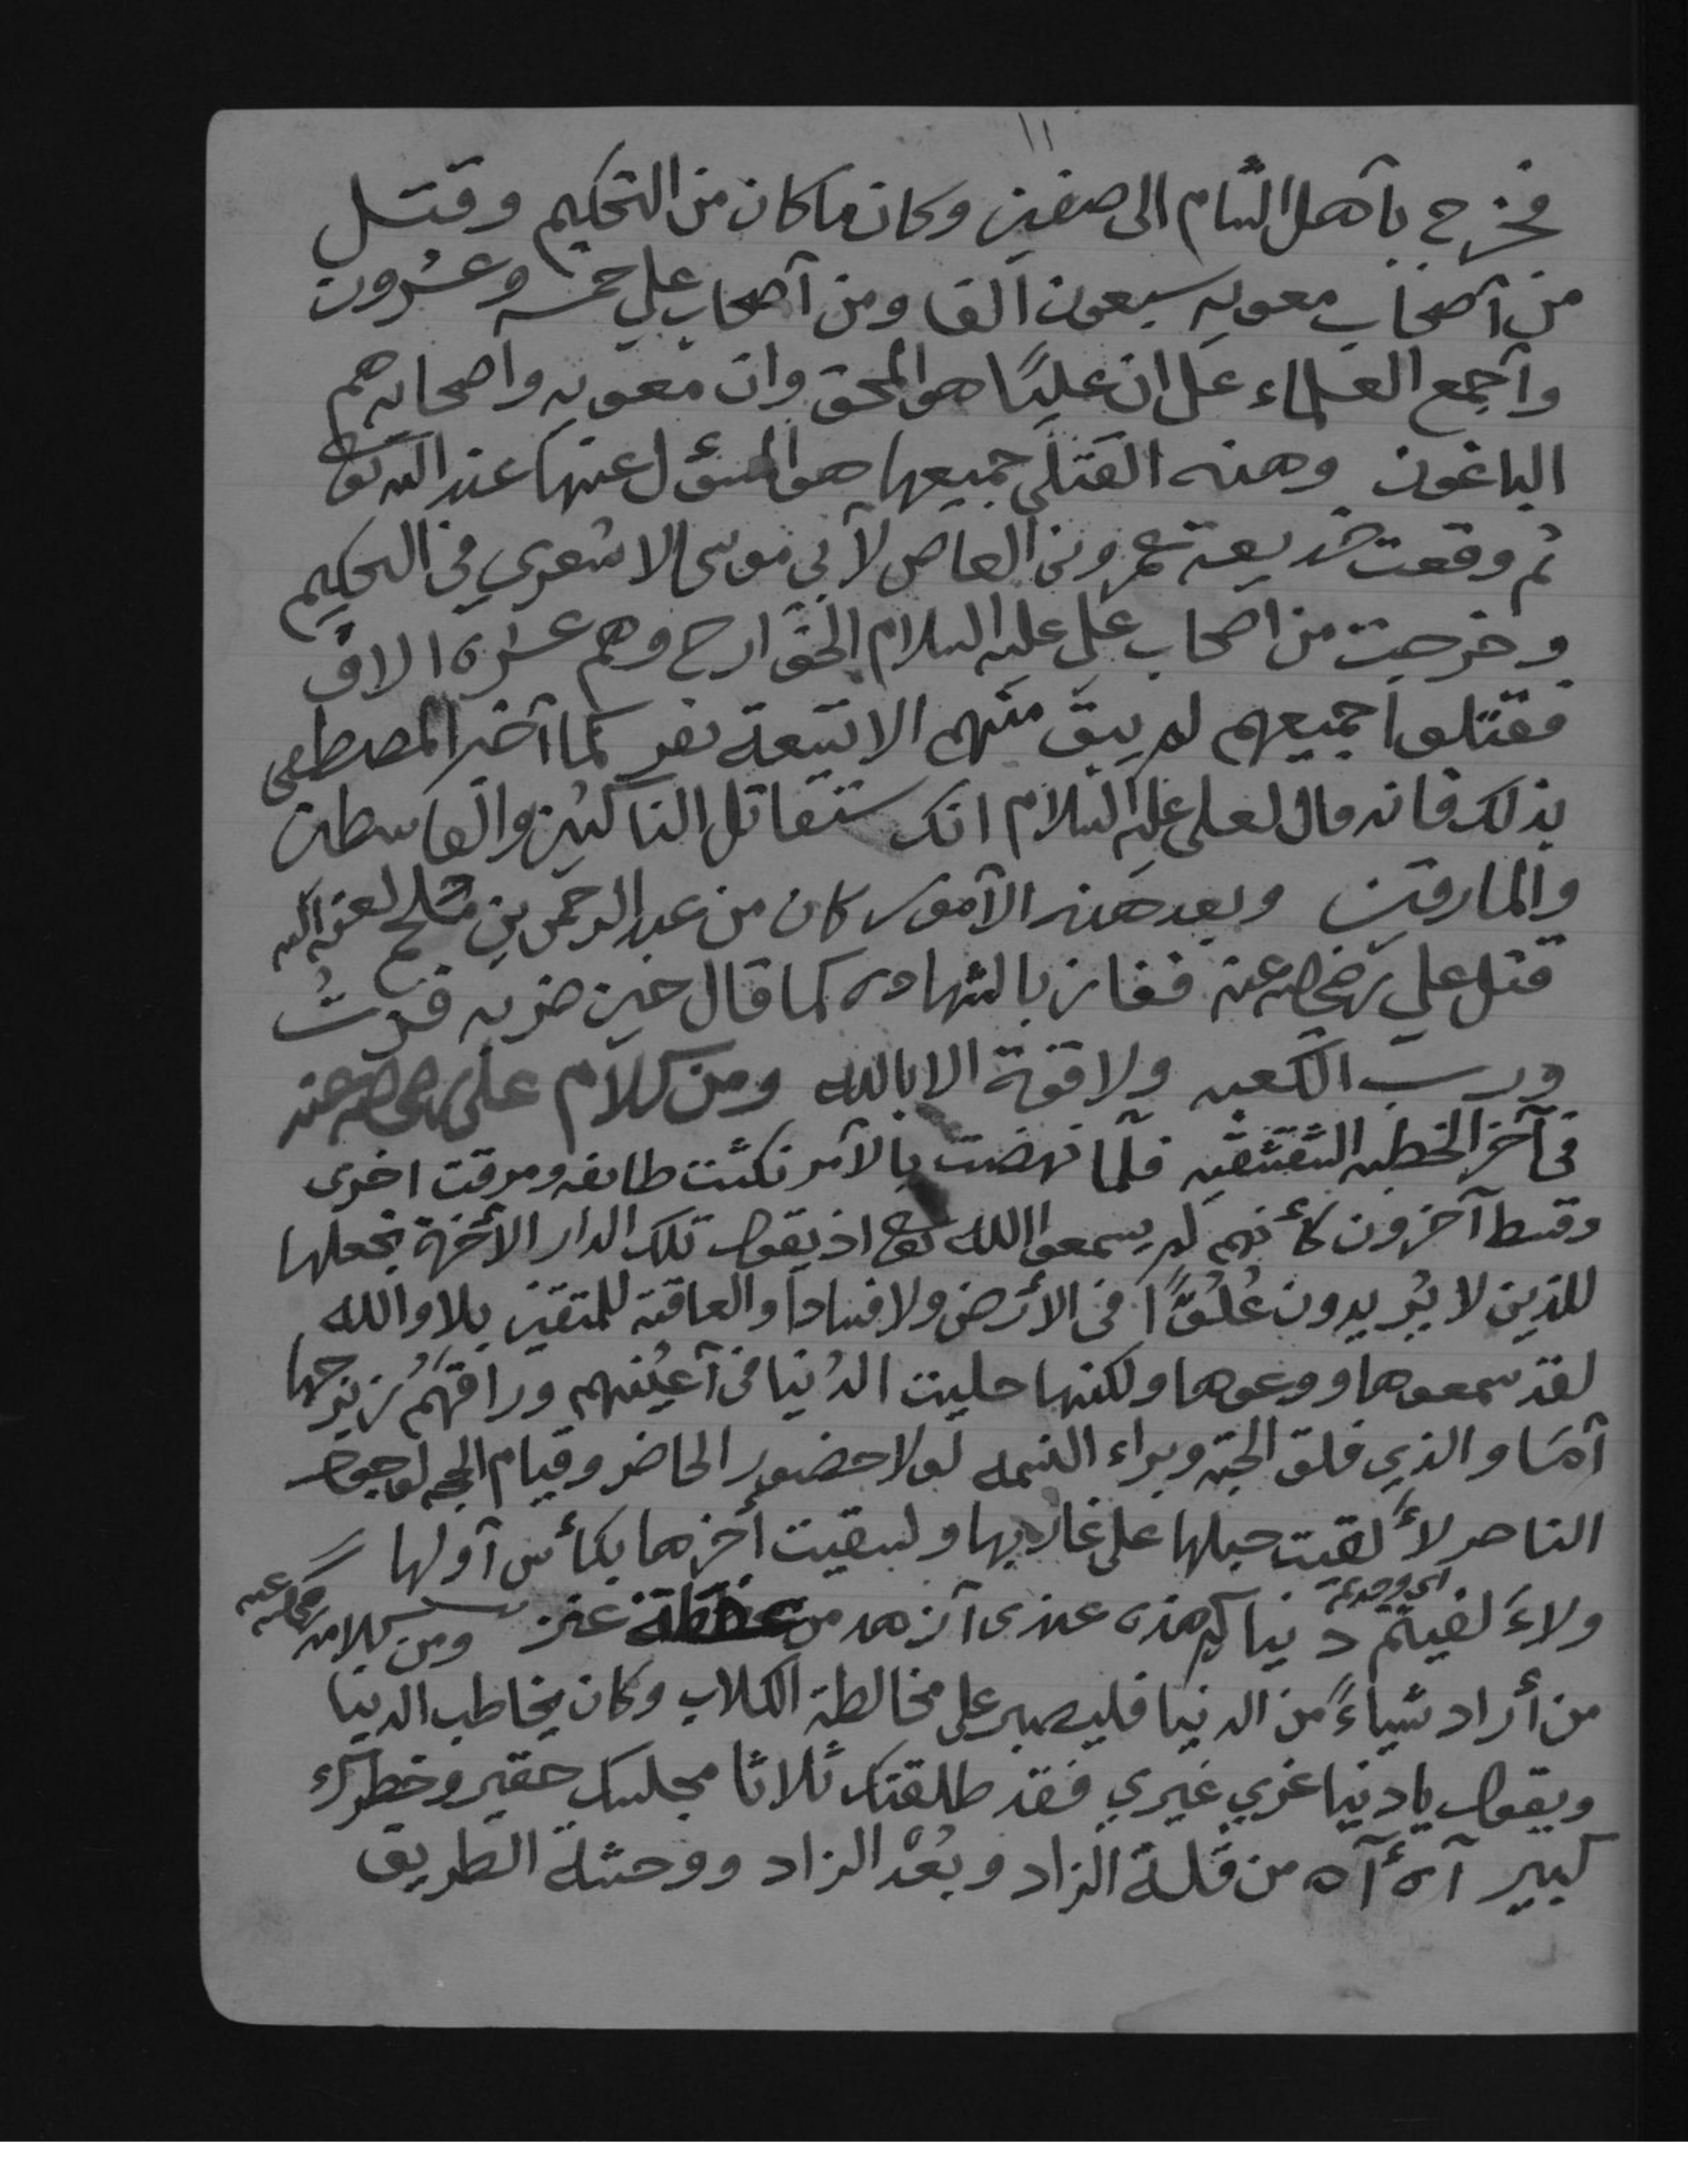 ١١
فخرج بآهل الشام الى صفين وكان ما كان من التحكيم وقتل
من آصحاب معويه سبعون آلفا ومن آصحاب علي خمسه وعشرون
وآجمع العلماء على ان عليًا هو المحق وان معويه واصحابه هم
الباغون وهذه القتلى جميعها هو المسؤل عنها عند الله تعالى
ثم وقعت خديعة عمرو بن العاص لآبي موسى الاشعري في التحكيم
وخرجت من اصحاب علي عليه السلام الخوارج وهم عشرة الاف
فقتلوا جميعهم لم يبق منهم الا تسعة نفر كما آخبر المصطفى
بذلك فانه قال لعلي عليه السلام انك ستقاتل الناكثين والقاسطين
والمارقين وبعد هذه الآمور كان من عبد الرحمن بن ملجم لعنه الله
قتل علي رضي الله عنه ففاز بالشهاده كما قال حين ضربه فزتُ
ورب الكعبه ولا قوة الا بالله ومن كلام علي رضي الله عنه
في آخر الخطبه الشقشقيه فلمّا نهضت بالآمر نكثت طايفه ومرقت اخرى
وقسط آخرون كأنهم لم يسمعوا الله تعالى اذ يقول تلك الدار الأخرة نجعلها
للذين لا يُريدون عُلُوًّا في الأرض ولا فسادا والعاقبه للمتقين بلا والله
لقد سمعوها ووعوها ولكنها حليت الدُنيا في آعيُنهم وراقهُم زبرجها
آمَا والذي فلق الحبّه وبراء النسمه لولا حضور الحاضر وقيام الحجه لوجود
الناصر لأَلقيت حبلها على غاربها ولسقيت أخرها بكأس آولها
ولاءَلفيتم دنياكم هذه عندي آزهد من عفطة عنز ومن كلامه رضي الله عنه
اي وجدتم
من أراد شياءً من الدنيا فليصبر على مخالطة الكلاب وكان يخاطب الدنيا
ويقول يا دنيا غري غيري فقد طلقتك ثلاثا مجلسك حقير وخطرك
كبير آهُ آه من قلة الزاد وبُعْد الزاد ووحشة الطريق